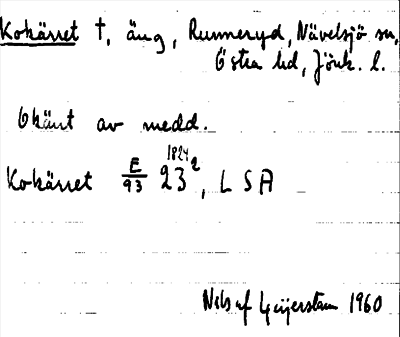 Kokärret †, äng, Runneryd, Nävelsjö sn,
Östra hd, Jönk. l.
Okänt av medd.
Kokärret E/93 23² 1824, L S A
Nils af Geijerstam 1960